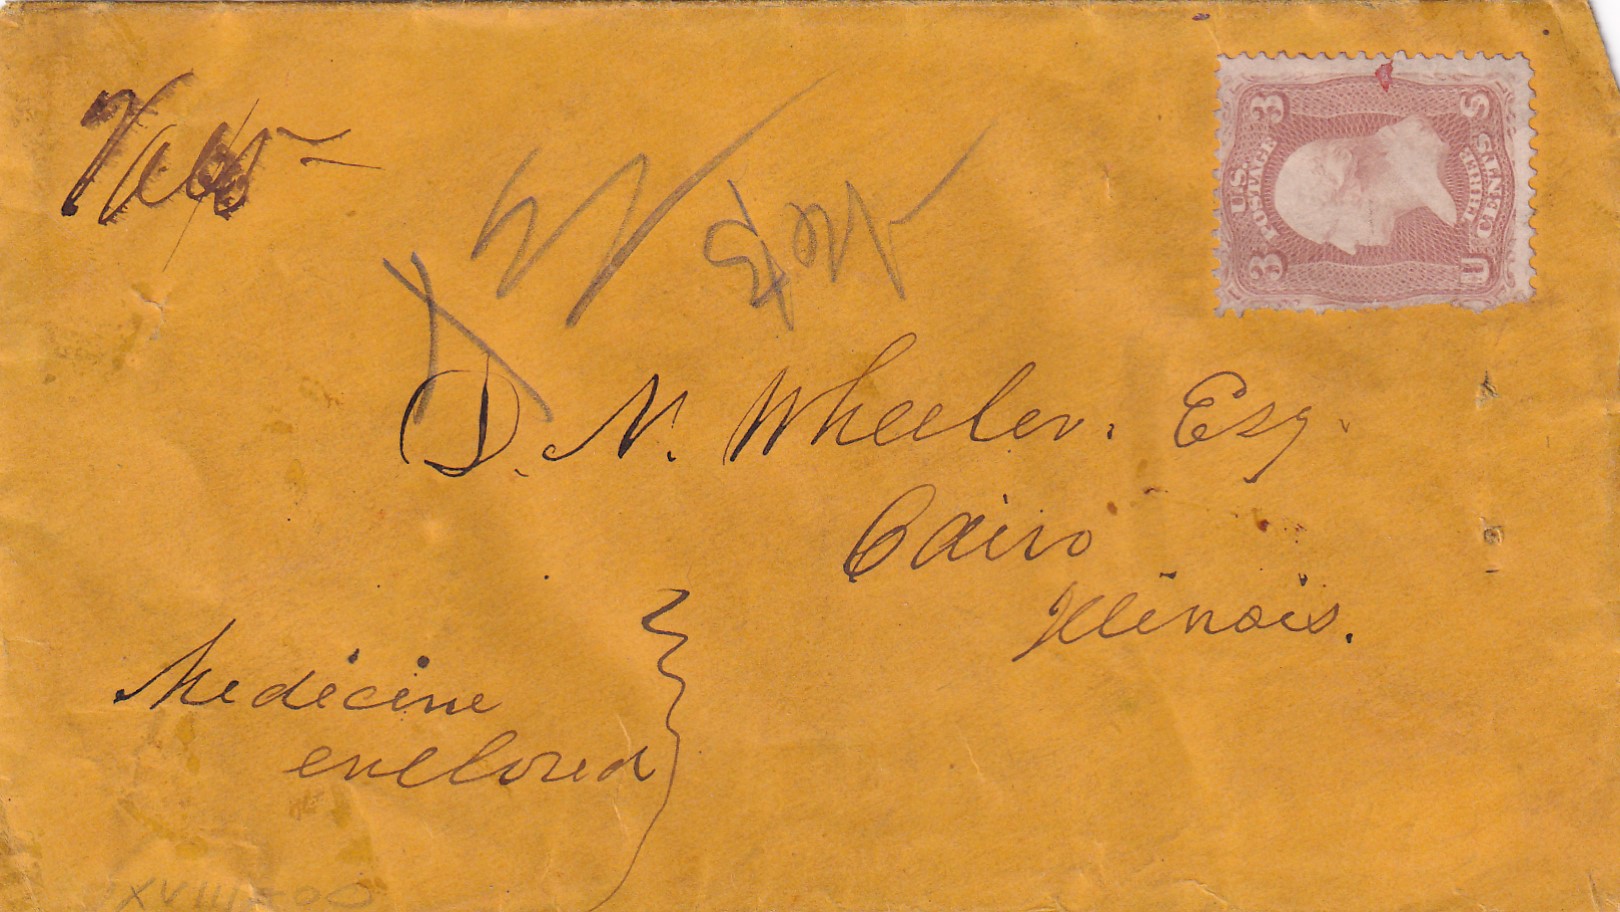 3 U.S. POSTAGE 3
U THREE CENTS S
D. N. Wheeler. Esq.
Cairo
Illinois.
Medicine
enclosed